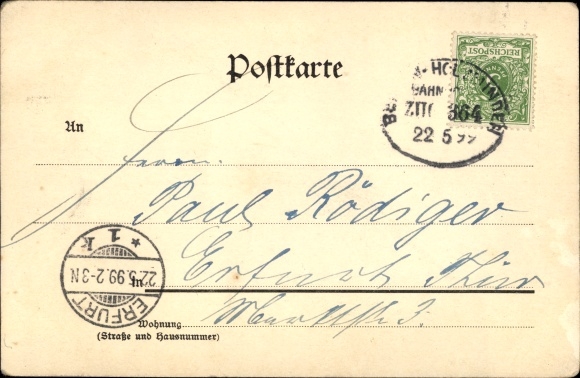 Postkarte
REICHSPOST
HOLZMINDEN
BAHN
ZUG 864
22 5 99
An
Herrn
Paul Rödiger
Erfurt Thür
ERFURT
22.5.99.2-3N
* 1 k
in
Wohnung
(Straße und Hausnummer)